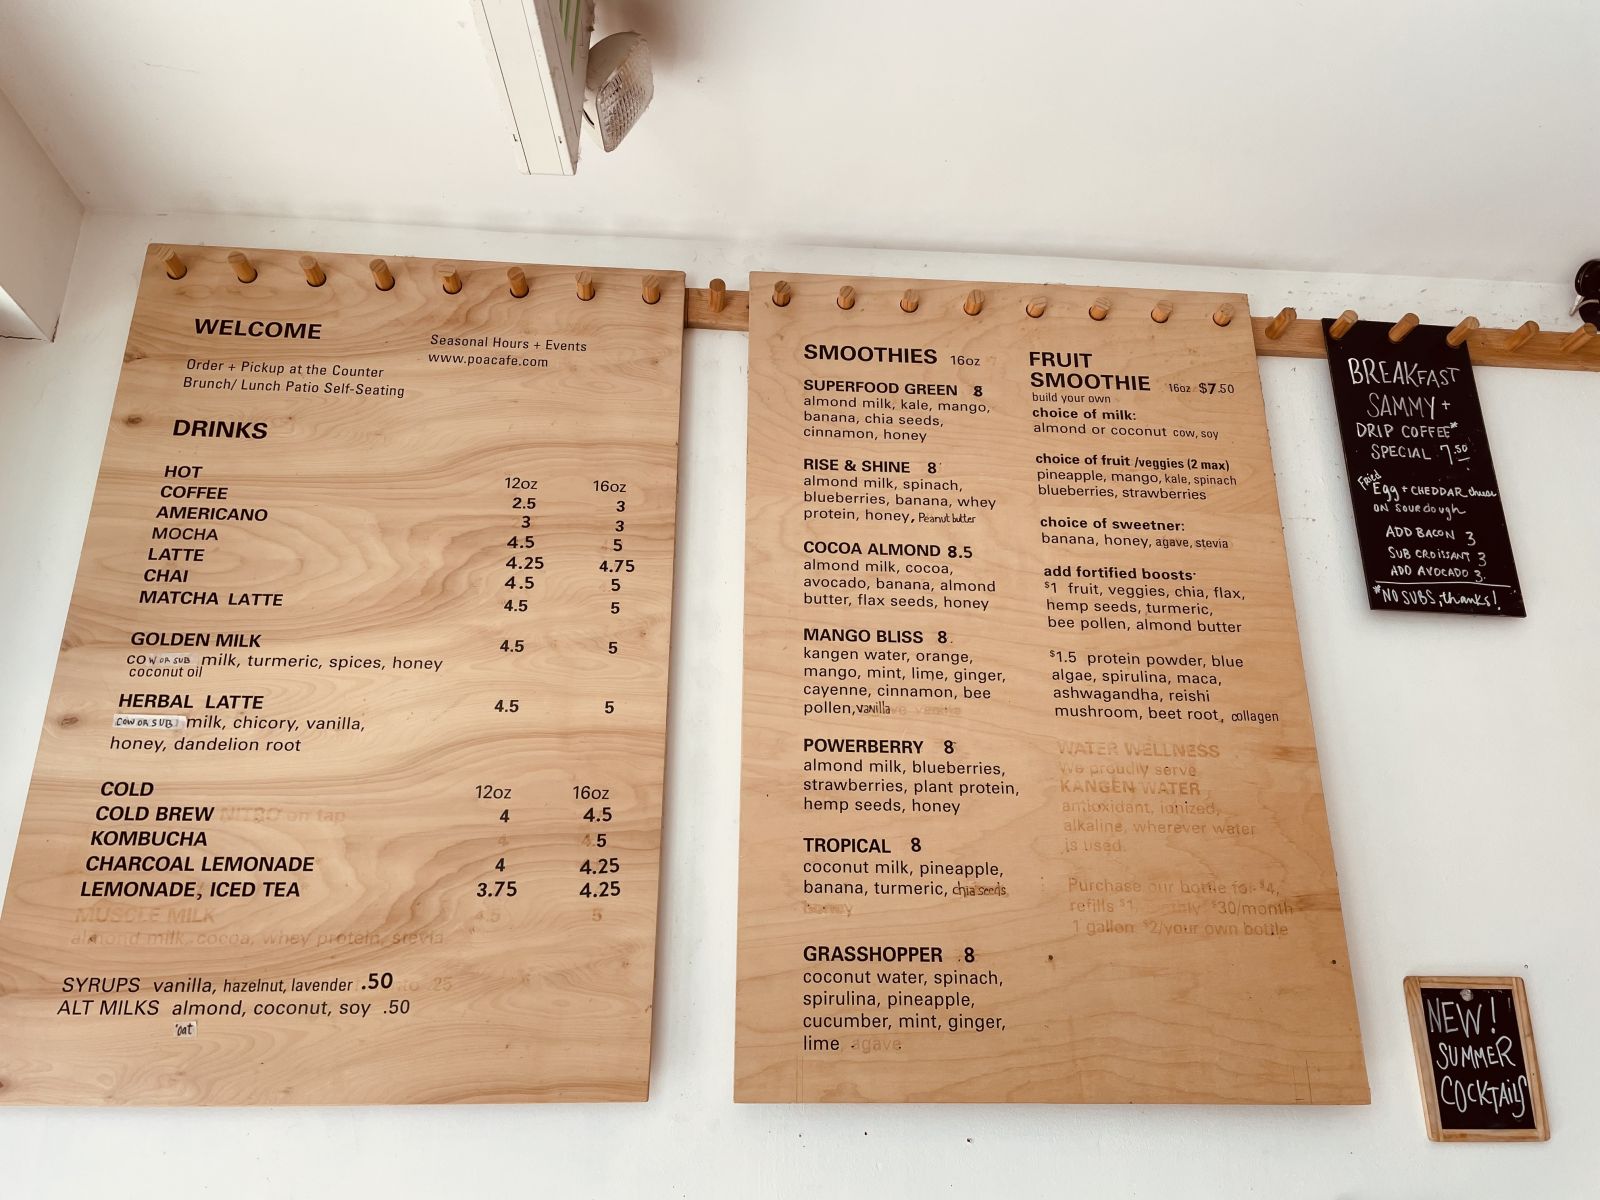 WELCOME
Order + Pickup at the Counter
Brunch/ Lunch Patio Self-Seating
Seasonal Hours + Events
www.poacafe.com
DRINKS
HOT 12oz 16oz
COFFEE 2.5 3
AMERICANO 3 3
MOCHA 4.5 5
LATTE 4.25 4.75
CHAI 4.5 5
MATCHA LATTE 4.5 5
GOLDEN MILK 4.5 5
COW OR SUB milk, turmeric, spices, honey
coconut oil
HERBAL LATTE 4.5 5
COW OR SUB! milk, chicory, vanilla,
honey, dandelion root
COLD 12oz 16oz
COLD BREW NITRO on tap 4 4.5
KOMBUCHA 4 5
CHARCOAL LEMONADE 4 4.25
LEMONADE, ICED TEA 3.75 4.25
MUSCLE MILK 4.5 5
almond milk, cocoa, whey protein, stevia
SYRUPS vanilla, hazelnut, lavender .50 .25
ALT MILKS almond, coconut, soy .50
oat
SMOOTHIES 16oz
SUPERFOOD GREEN 8
almond milk, kale, mango,
banana, chia seeds,
cinnamon, honey
RISE & SHINE 8
almond milk, spinach,
blueberries, banana, whey
protein, honey, Peanut butter
COCOA ALMOND 8.5
almond milk, cocoa,
avocado, banana, almond
butter, flax seeds, honey
MANGO BLISS 8
kangen water, orange,
mango, mint, lime, ginger,
cayenne, cinnamon, bee
pollen, vanilla
POWERBERRY 8
almond milk, blueberries,
strawberries, plant protein,
hemp seeds, honey
TROPICAL 8
coconut milk, pineapple,
banana, turmeric, chia seeds
honey
GRASSHOPPER 8
coconut water, spinach,
spirulina, pineapple,
cucumber, mint, ginger,
lime, agave
FRUIT
SMOOTHIE 16oz $7.50
build your own
choice of milk:
almond or coconut cow, soy
choice of fruit /veggies (2 max)
pineapple, mango, kale, spinach
blueberries, strawberries
choice of sweetner:
banana, honey, agave, stevia
add fortified boosts
$1 fruit, veggies, chia, flax,
hemp seeds, turmeric,
bee pollen, almond butter
$1.5 protein powder, blue
algae, spirulina, maca,
ashwagandha, reishi
mushroom, beet root, collagen
WATER WELLNESS
We proudly serve
KANGEN WATER
antioxidant, ionized,
alkaline, wherever water
is used.
Purchase our bottle for $4,
refills $1, $30/month
1 gallon $2/your own bottle
BREAKFAST
SAMMY +
DRIP COFFEE*
SPECIAL 7.50
Fried
Egg + CHEDDAR cheese
ON SOURdough
ADD BACON 3
SUB CROISSANT 3
ADD AVOCADO 3.
*NO SUBS, thanks!
NEW!
SUMMER
COCKTAILS